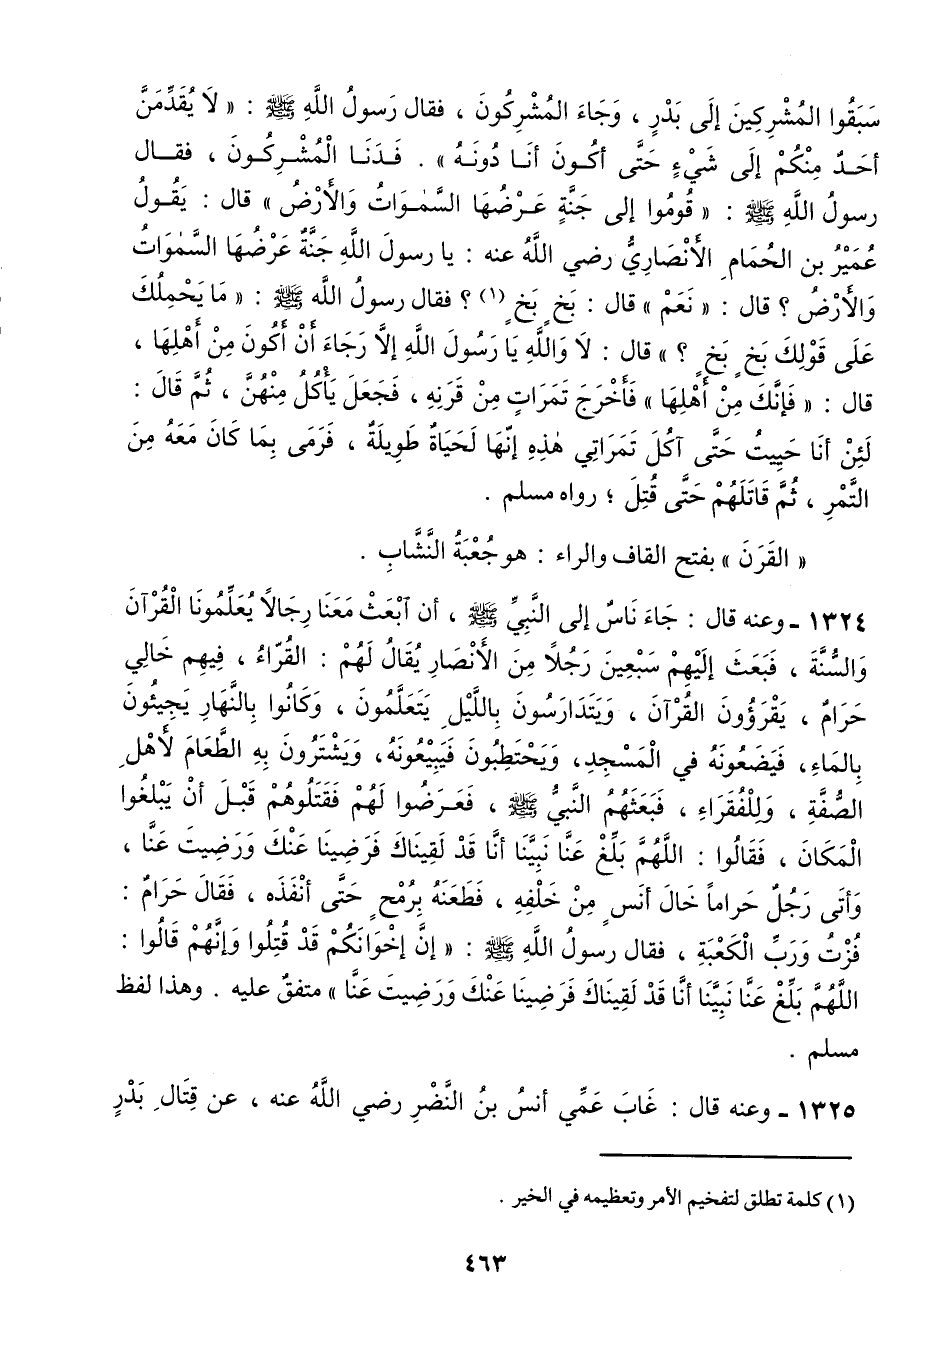 سَبَقُوا المُشْرِكِينَ إلَى بَدْرٍ ، وَجَاءَ المُشْرِكُونَ ، فقال رَسولُ اللَّهِ ﷺ : « لَا يُقَدِّمَنَّ
أحَـدٌ مِنْكُمْ إلَى شَيْءٍ حَتَّى أكُونَ أنَـا دُونَـهُ » . فَـدَنَـا الْمُشْـرِكُـونَ ، فقــال
رسولُ اللَّهِ ﷺ : « قُومُوا إلى جَنَّةٍ عَـرْضُهَا السَّمٰـوَاتُ وَالْأَرْضُ » قال : يَقُولُ
عُمَيْرُ بن الحُمَامِ الأَنْصَارِيُّ رضي اللَّهُ عنه : يا رسولَ اللَّهِ جَنَّةٌ عَرْضُهَا السَّمٰوَاتُ
وَالْأَرْضُ ؟ قال : « نَعَمْ » قال : بَخٍ بَخٍ (١) ؟ فقال رسولُ اللَّه ﷺ : « مَا يَحْمِلُكَ
عَلَى قَوْلِكَ بَخٍ بَخٍ ؟ » قال : لَا وَاللَّهِ يَا رَسُولَ اللَّهِ إلَّا رَجَاءَ أَنْ أَكُونَ مِنْ أَهْلِهَا ،
قال : « فَإنَّكَ مِنْ أَهْلِهَا » فَأَخْرَجَ تَمَرَاتٍ مِنْ قَرَنِهِ ، فَجَعَلَ يَأْكُلُ مِنْهُنَّ ، ثُمَّ قَالَ :
لَئِنْ أنَا حَيِيتُ حَتَّى آكُلَ تَمَرَاتِي هٰذِهِ إنَّهَا لَحَيَاةٌ طَوِيلَةٌ ، فَرَمَى بِمَا كَانَ مَعَهُ مِنَ
التَّمْرِ ، ثُمَّ قَاتَلَهُمْ حَتَّى قُتِلَ ؛ رواه مسلم .
« القَرَنَ » بفتح القاف والراء : هو جُعْبَةُ النَّشَّابِ .
١٣٢٤ ـ وعنه قال : جَاءَ نَاسٌ إلى النَّبِيِّ ﷺ ، أن ابْعَثْ مَعَنَا رِجَالاً يُعَلِّمُونَا الْقُرْآنَ
وَالسُّنَّةَ ، فَبَعَثَ إلَيْهِمْ سَبْعِينَ رَجُلاً مِنَ الأَنْصَارِ يُقَالُ لَهُمْ : القُرّاءُ ، فِيهِم خَالِي
حَرَامٌ ، يَقْرَؤُونَ القُرْآنَ ، وَيَتَدَارَسُونَ بِاللَّيْلِ يَتَعَلَّمُونَ ، وَكَانُوا بِالنَّهَارِ يَجِيئُونَ
بِالمَاءِ، فَيَضَعُونَهُ في الْمَسْجِدِ، وَيَحْتَطِبُونَ فَيَبِيْعُونَهُ، وَيَشْتَرُونَ بِهِ الطَّعَامَ لأَهْلِ
الصُّفَّةِ ، وَلِلْفُقَرَاءِ ، فَبَعَثَهُمُ النَّبيُّ ﷺ ، فَعَـرَضُوا لَهُمْ فَقَتَلُوهُمْ قَبْـلَ أنْ يَبْلُغُوا
الْمَكَانَ ، فَقَالُوا : اللَّهُمَّ بَلِّغْ عَنَّا نَبِيَّنَا أنَّا قَدْ لَقِينَاكَ فَرَضِينَا عَنْكَ وَرَضِيتَ عَنَّا ،
وَأتَى رَجُلٌ حَراماً خَالَ أنَسٍ مِنْ خَلْفِهِ ، فَطَعَنَهُ بِرُمْحٍ حَتَّى أنْفَذَه ، فَقَالَ حَرَامٌ :
فُزْتُ وَرَبِّ الْكَعْبَةِ ، فقال رسولُ اللَّهِ ﷺ : « إنَّ إخْوَانَكُمْ قَدْ قُتِلُوا وَإنَّهُمْ قَالُوا :
اللَّهُمَّ بَلِّغْ عَنَّا نَبِيَّنَا أنَّا قَدْ لَقِينَاكَ فَرَضِينَا عَنْكَ وَرَضِيتَ عَنَّا » متفقٌ عليه . وهذا لفظ
مسلم .
١٣٢٥ ـ وعنه قال : غَابَ عَمِّي أنسُ بنُ النَّضْرِ رضي اللَّهُ عنه ، عن قِتَالِ بَدْرٍ
(١) كلمة تطلق لتفخيم الأمر وتعظيمه في الخير .
٤٦٣